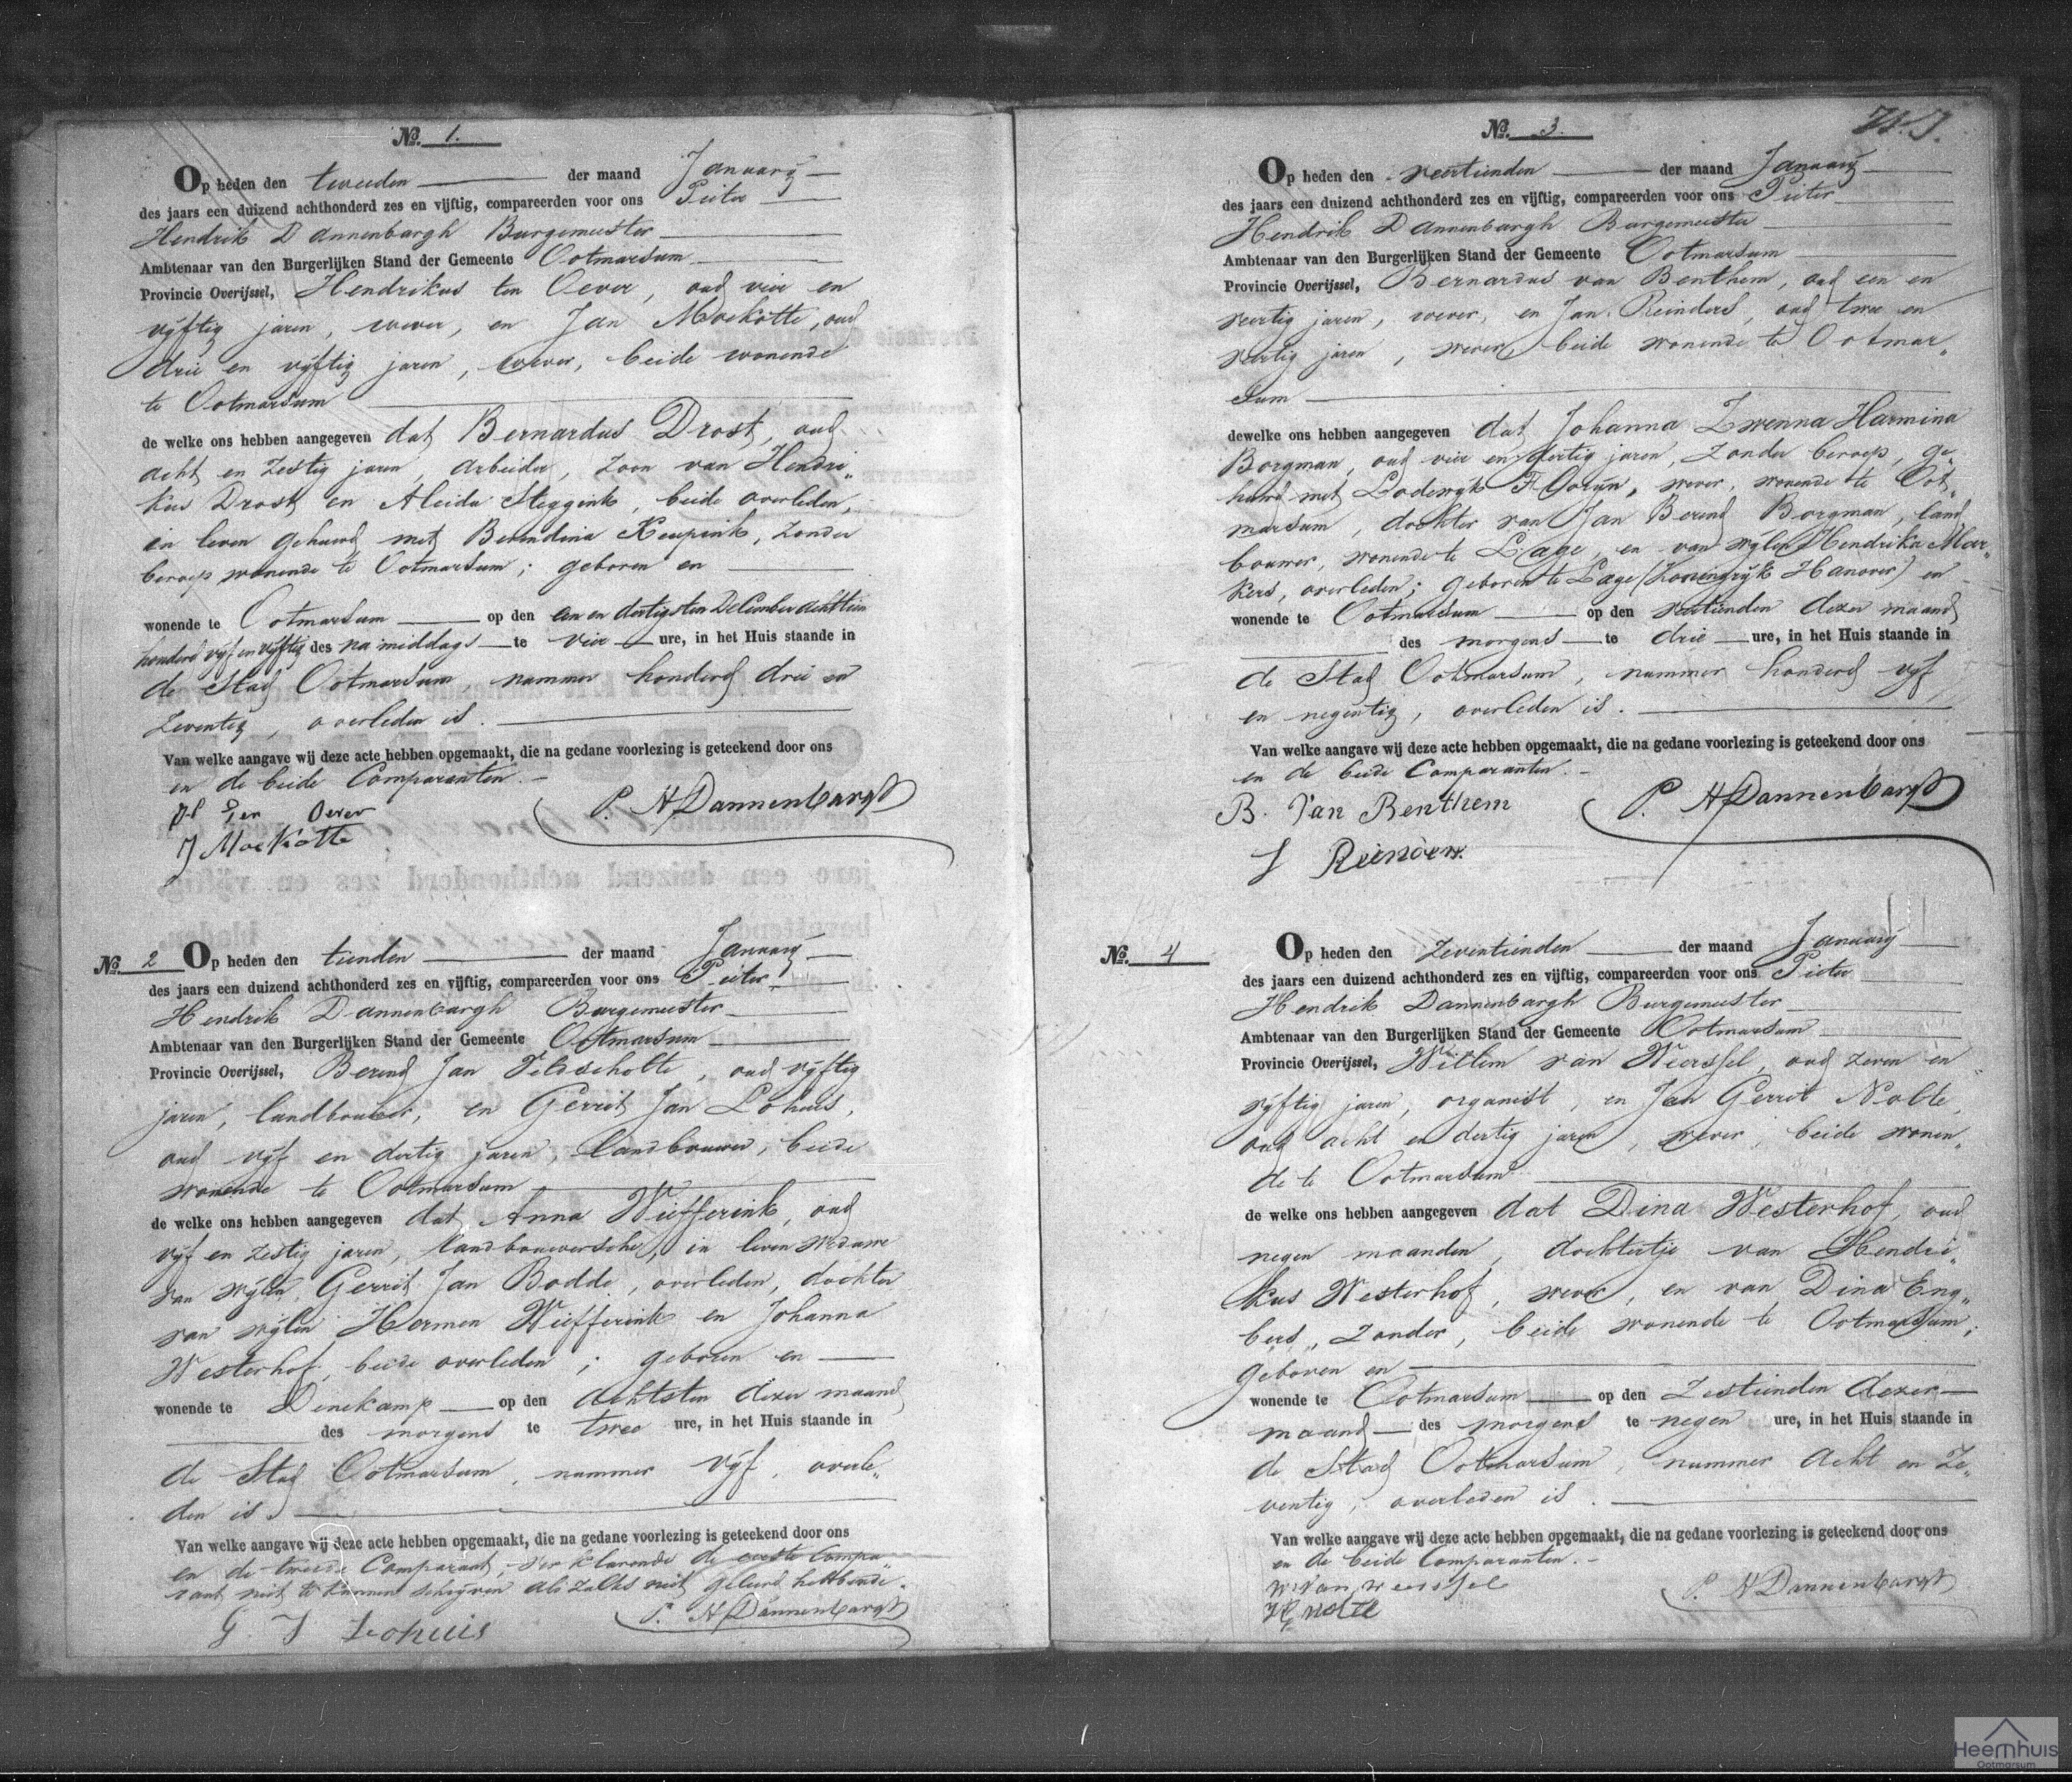 No. 1.
Op heden den tweeden der maand January
des jaars een duizend achthonderd zes en vijftig, compareerden voor ons Pieter
Hendrik Dannenbargh Burgemeester
Ambtenaar van den Burgerlijken Stand der Gemeente Ootmarsum
Provincie Overijssel, Hendrikus ten Oever, oud vier en
vijftig jaren, wever, en Jan Moekotte, oud
drie en vijftig jaren, wever, beide wonende
te Ootmarsum
de welke ons hebben aangegeven dat Bernardus Drost, oud
acht en zestig jaren, arbeider, zoon van Hendri„
kus Drost en Aleida Steggink, beide overleden,
in leven gehuwd met Berendina Keupink, zonder
beroep wonende te Ootmarsum; geboren en
wonende te Ootmarsum op den een en dertigsten December achttien
honderd vijf en vijftig des namiddags te vier ure, in het Huis staande in
de Stad Ootmarsum, nummer honderd drie en
zeventig, overleden is.
Van welke aangave wij deze acte hebben opgemaakt, die na gedane voorlezing is geteekend door ons
en de beide Comparanten.
H ten Oever
P. H Dannenbargh
J Moekotte
No. 2 Op heden den tienden der maand January
des jaars een duizend achthonderd zes en vijftig, compareerden voor ons Pieter
Hendrik Dannenbargh Burgemeester
Ambtenaar van den Burgerlijken Stand der Gemeente Ootmarsum
Provincie Overijssel, Berend Jan Veldscholte, oud vijftig
jaren, landbouwer, en Gerrit Jan Lohuis,
oud vijf en dertig jaren, landbouwer, beide
wonende te Ootmarsum
de welke ons hebben aangegeven dat Anna Wiefferink, oud
vijf en zestig jaren, landbouwersche, in leven weduwe
van wijlen Gerrit Jan Bodde, overleden, dochter
van wijlen Hermen Wiefferink en Johanna
Westerhof, beide overleden; geboren en
wonende te Denekamp op den achtsten dezer maand
des morgens te twee ure, in het Huis staande in
de Stad Ootmarsum, nummer vijf, overle„
den is.
Van welke aangave wij deze acte hebben opgemaakt, die na gedane voorlezing is geteekend door ons
en de tweede Comparant, verklarende de eerste Compa„
rant niet te kunnen schrijven als zulks niet geleerd hebbende.
P. H Dannenbargh
G J Lohuis
No. 3.
Op heden den veertienden der maand January
des jaars een duizend achthonderd zes en vijftig, compareerden voor ons Pieter
Hendrik Dannenbargh Burgemeester
Ambtenaar van den Burgerlijken Stand der Gemeente Ootmarsum
Provincie Overijssel, Bernardus van Benthem, oud een en
veertig jaren, wever, en Jan Reinders, oud twee en
veertig jaren, wever, beide wonende te Ootmar„
sum
dewelke ons hebben aangegeven dat Johanna Zwenna Harmina
Borgman, oud vier en dertig jaren, zonder beroep, ge„
huwd met Lodewyk Floryn, wever, wonende te Oot„
marsum, dochter van Jan Berend Borgman, land
bouwer, wonende te Lage, en van wijlen Hendrika Mar„
kers, overleden; geboren te Lage (Koningrijk Hanover) en
wonende te Ootmarsum op den veertienden dezer maand
des morgens te drie ure, in het Huis staande in
de Stad Ootmarsum, nummer honderd vijf
en negentig, overleden is.
Van welke aangave wij deze acte hebben opgemaakt, die na gedane voorlezing is geteekend door ons
en de beide Comparanten.
B. Van Benthem
P. H Dannenbargh
J Reinders.
No. 4
Op heden den zeventienden der maand January
des jaars een duizend achthonderd zes en vijftig, compareerden voor ons Pieter
Hendrik Dannenbargh Burgemeester
Ambtenaar van den Burgerlijken Stand der Gemeente Ootmarsum
Provincie Overijssel, Willem van Weerssel, oud zeven en
vijftig jaren, organist, en Jan Gerrit Nolte,
oud acht en dertig jaren, wever, beide wonen„
de te Ootmarsum
de welke ons hebben aangegeven dat Dina Westerhof, oud
negen maanden, dochtertje van Hendri„
kus Westerhof, wever, en van Dina Eng„
bers, zonder, beide wonende te Ootmarsum;
geboren en
wonende te Ootmarsum op den zestienden dezer
maand des morgens te negen ure, in het Huis staande in
de Stad Ootmarsum, nummer acht en ze„
ventig, overleden is.
Van welke aangave wij deze acte hebben opgemaakt, die na gedane voorlezing is geteekend door ons
en de beide Comparanten.
W van weerssel
P. H Dannenbargh
nolte
Heemhuis
Ootmarsum